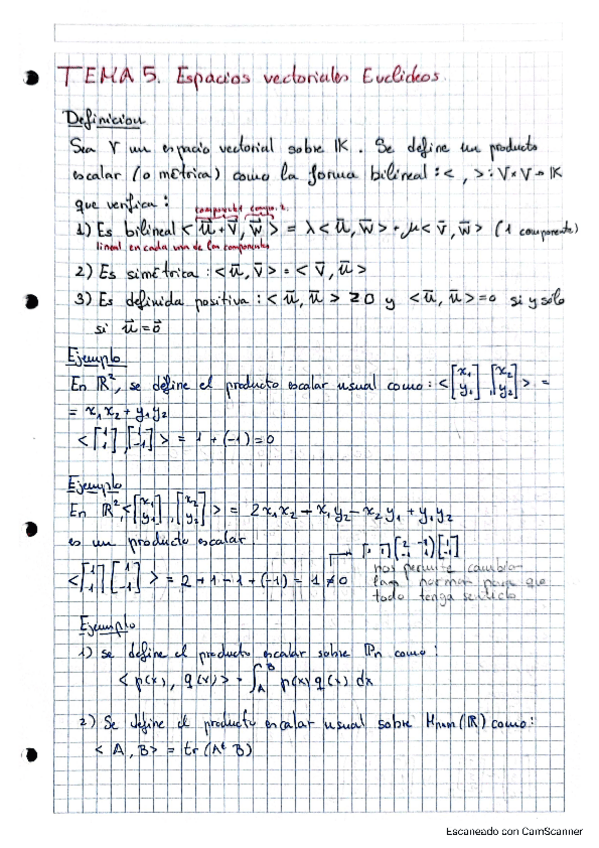 TEMA 5. Espacios vectoriales Euclídeos.
Definicion
Sea V un espacio vectorial sobre IK. Se define un producto
escalar (o métrica) como la forma bilineal: < , >: V×V→IK
que verifica:
componente 1 compo. 2
1) Es bilineal <u⃗+v⃗, w⃗> = λ<u⃗, w⃗> + μ<v⃗, w⃗> (1 componente)
lineal en cada una de las componentes
2) Es simétrica: <u⃗, v⃗> = <v⃗, u⃗>
3) Es definida positiva: <u⃗, u⃗> ≥ 0 y <u⃗, u⃗> = 0 si y sólo
si u⃗ = 0⃗
Ejemplo
En IR², se define el producto escalar usual como: <[x₁ y₁], [x₂ y₂]> =
= x₁x₂ + y₁y₂
<[1 1], [1 -1]> = 1 + (-1) = 0
Ejemplo
En IR², <[x₁ y₁], [x₂ y₂]> = 2x₁x₂ - x₁y₂ - x₂y₁ + y₁y₂
es un producto escalar.
[1 1][2 -1 -1 1][1 -1]
<[1 1][1 -1]> = 2+1-1+(-1) = 1 ≠ 0
nos permite cambiar
las normas para que
todo tenga sentido
Ejemplo
1) se define el producto escalar sobre IPn como:
<p(x), q(x)> = ∫ᴬᴮ p(x) q(x) dx
2) Se define el producto escalar usual sobre Mnxm(IR) como:
<A, B> = tr(Aᵗ B)
Escaneado con CamScanner